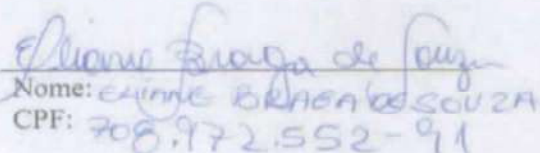 Eliane Braga de Souza
Nome: ELIANE BRAGA DE SOUZA
CPF: 708.972.552-91